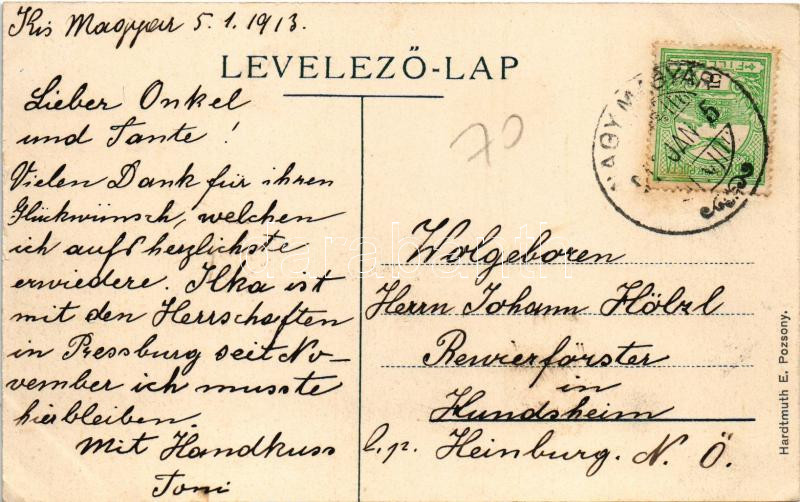 Kis Magyar 5.1.1913.
LEVELEZŐ-LAP
Lieber Onkel
und Tante!
Vielen Dank für ihren
Glückwünsch, welchen
ich aufs herzlichste
erwiedere. Ilka ist
mit den Herrschaften
in Pressburg seit No-
vember ich musste
hierbleiben.
Mit Handkuss
Toni
70
NAGYMAGYAR
JAN 5
Wolgeboren
Herrn Johann Hölzl
Revierförster
in
Hundsheim
b. p. Heinburg. N. Ö.
Hardtmuth E. Pozsony.
darabanth